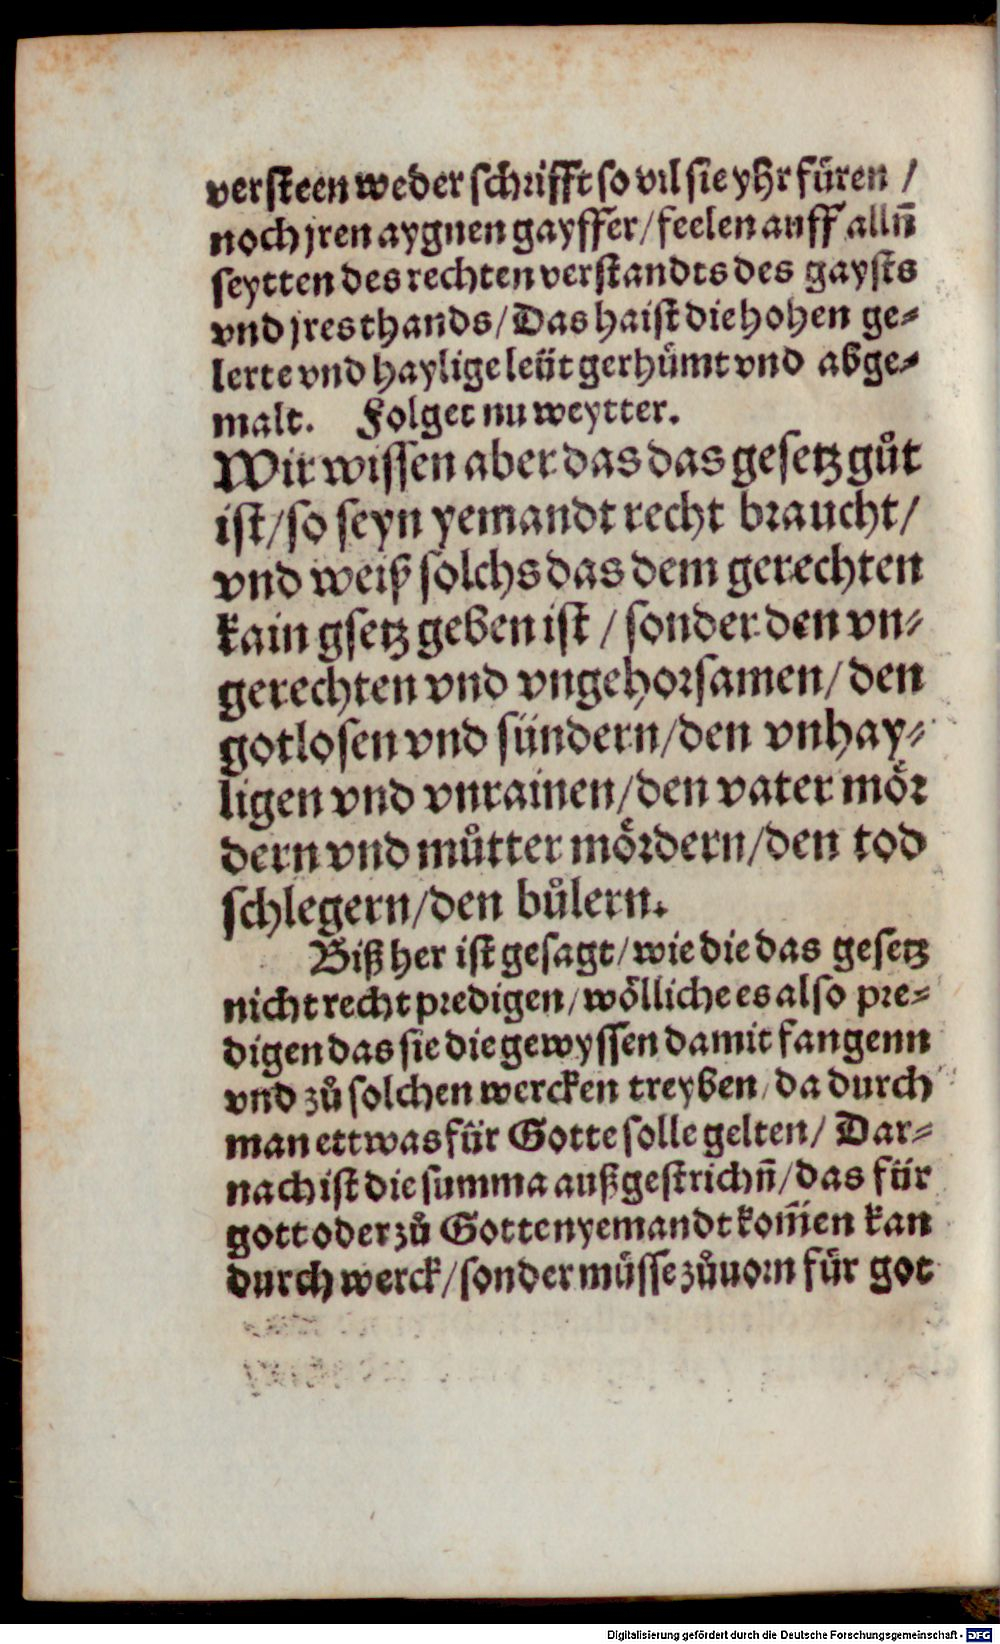 versteen weder schrifft so vil sie yhr füren /
noch jren aygnen gayffer / feelen auff alln̄
seytten des rechten verstandts des gaysts
vnd jres thands / Das haist die hohen ge⸗
lerte vnd haylige leüt gerhůmt vnd abge⸗
malt. Folget nu weytter.
Wir wissen aber das das gesetz gůt
ist / so seyn yemandt recht braucht /
vnd weiß solchs das dem gerechten
kain gsetz geben ist / sonder den vn⸗
gerechten vnd vngehorsamen / den
gotlosen vnd sündern / den vnhay⸗
ligen vnd vnrainen / den vater mör
dern vnd můtter mördern / den tod
schlegern / den bůlern.
Biß her ist gesagt / wie die das gesetz
nicht recht predigen / wölliche es also pre⸗
digen das sie die gewyssen damit fangenn
vnd zů solchen wercken treyben / da durch
man ettwas für Gotte solle gelten / Dar⸗
nach ist die summa außgestrichn̄ / das für
gott oder zů Gotten yemandt kom̄en kan
durch werck / sonder müsse zůuorn für got
Digitalisierung gefördert durch die Deutsche Forschungsgemeinschaft - DFG